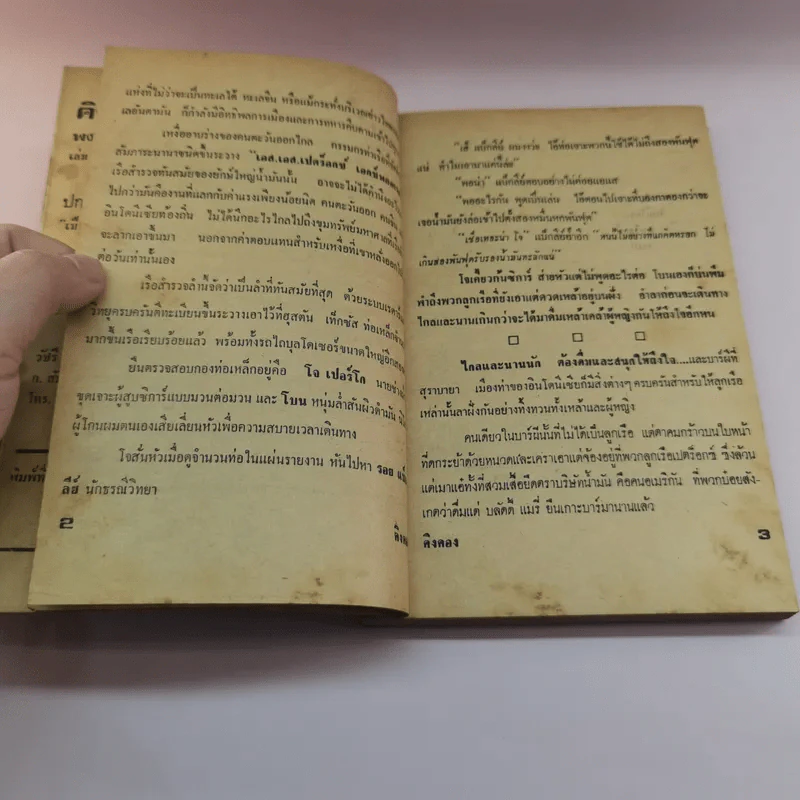 คิ
พง
เล่ม
ปก
วัชรี
โทร.
พิมพ์ที่
แห่งที่ไม่ว่าจะเป็นทะเลใต้ ทะเลจีน หรือแม้กระทั่งบริเวณอ่าวไทย
เลอันดามัน ก็กำลังมีอิทธิพลการเมืองและการทหารคืบคานเข้าไป
เหงื่ออาบร่างของคนตะวันออกไกล กรรมกรท่าเรือที่
สัมภาระนานาชนิดขึ้นระวาง "เอส.เอส.เปตร็อกซ์
เรือสำรวจทันสมัยของยักษ์ใหญ่น้ำมันนั้น อาจจะไม่ได้คำนึง
ไปกว่ามันคืองานที่แลกกับค่าแรงเพียงน้อยนิด คนตะวันออก
อินโดนีเซียท้องถิ่น ไม่ได้นึกอะไรไกลไปถึงขุมทรัพย์มหาศาลที่
จะลากเอาขึ้นมา นอกจากค่าตอบแทนสำหรับเหงื่อที่เขาหลั่งออก
ต่อวันเท่านั้นเอง
เรือสำรวจลำนี้จัดว่าเป็นลำที่ทันสมัยที่สุด ด้วยระบบเรดาร์
วิทยุครบครันตีทะเบียนขึ้นระวางเอาไว้ที่ฮุสตัน เท็กซัส ท่อเหล็ก
มากขึ้นเรือเรียบร้อยแล้ว พร้อมทั้งรถไถบุลโดเซอร์ขนาดใหญ่อีก
ยืนตรวจสอบกองท่อเหล็กอยู่คือ โจ เปอร์โก นายช่าง
ขุดเจาะผู้สูบซิการ์แบบมวนต่อมวน และ โบน หนุ่มล่ำสันผิวดำมัน
ผู้โกนผมตนเองเสียเลี่ยนหัวเพื่อความสบายเวลาเดินทาง
โจสั่นหัวเมื่อดูจำนวนท่อในแผ่นรายงาน หันไปหา รอย
ลีย์ นักธรณีวิทยา
2
คิงคอง
"เฮ้ แบ็กลีย์ ผมงงว่ะ ไอ้ท่อเจาะพวกนี้ใช้ได้ไม่ถึงสองพันฟุต
แน่ ทำไมเอามาแค่นี้ล่ะ"
"พอน่า" แบ็กลีย์ตอบอย่างไม่ค่อยแยแส
"พออะไรกัน พูดเป็นเล่น ไอ้ตอนไปเจาะที่บองกาตองกว่าจะ
เจอน้ำมันยังล่อเข้าไปตั้งสองหมื่นหกพันฟุต"
"เชื่อเหอะน่า โจ" แบ็กลีย์ย้ำอีก "คนนี้ไม่อย่างที่แกคิดหรอก ไม่
เกินสองพันฟุตรับรองน้ำมันทะลักแน่"
โจเคี้ยวก้นซิการ์ ส่ายหัวแต่ไม่พูดอะไรต่อ โบนเองก็บ่นพึม
พำถึงพวกลูกเรือที่ยังเอาแต่ดวดเหล้าอยู่บนฝั่ง อำลาก่อนจะเดินทาง
ไกลและนานเกินกว่าจะได้มาดื่มเหล้าเคล้าผู้หญิงกันให้ถึงใจอีกหน
□ □ □
ไกลและนานนัก ต้องดื่มและสนุกให้ถึงใจ....และบาร์ผีที่
สุราบายา เมืองท่าของอินโดนีเซียก็มีสิ่งต่างๆ ครบครันสำหรับให้ลูกเรือ
เหล่านั้นลาฝั่งกันอย่างทิ้งทวนทั้งเหล้าและผู้หญิง
คนเดียวในบาร์ผีนั้นที่ไม่ได้เป็นลูกเรือ แต่ตาคมกร้าวบนใบหน้า
ที่ดกระย้าด้วยหนวดและเคราเอาแต่จ้องอยู่ที่พวกลูกเรือเปตร็อกซ์ ซึ่งล้วน
แต่เมาแอ๋ทั้งที่สวมเสื้อยืดตราบริษัทน้ำมัน คือคนอเมริกัน ที่พวกบ๋อยสัง-
เกตว่าดื่มแต่ บลัดดี้ แมรี่ ยืนเกาะบาร์มานานแล้ว
คิงคอง
3